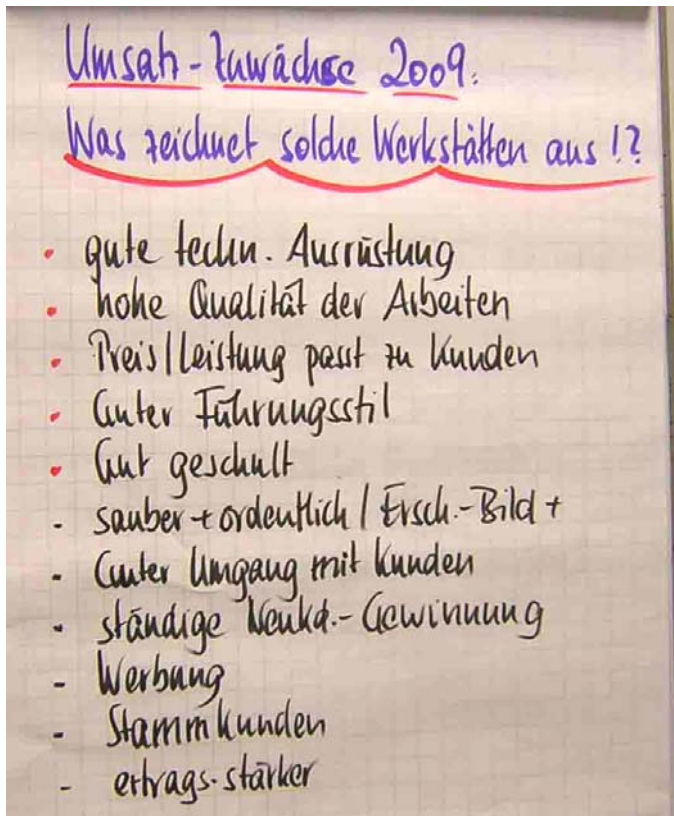 Umsatz-Zuwächse 2009:
Was zeichnet solche Werkstätten aus !?
• gute techn. Ausrüstung
• hohe Qualität der Arbeiten
• Preis/Leistung passt zu Kunden
• Guter Führungsstil
• Gut geschult
- sauber + ordentlich / Ersch.-Bild +
- Guter Umgang mit Kunden
- ständige Neukd.-Gewinnung
- Werbung
- Stammkunden
- ertrags-stärker